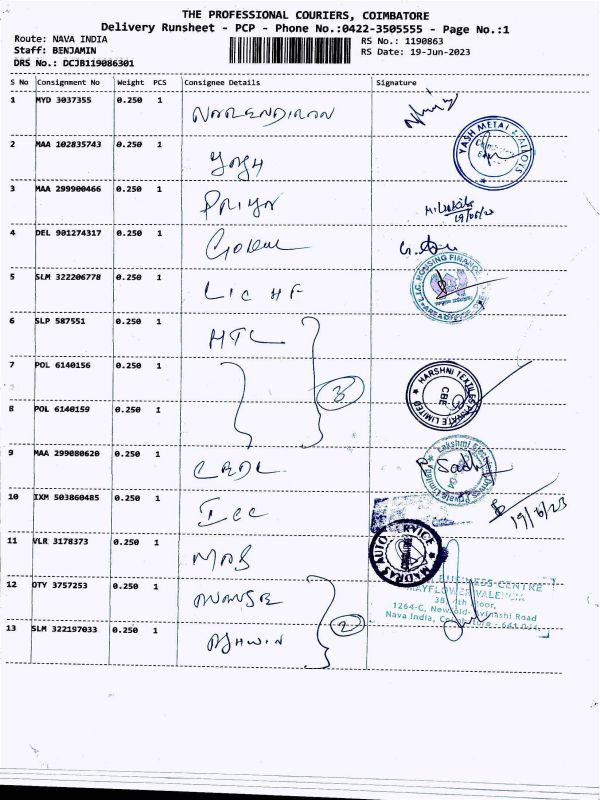 THE PROFESSIONAL COURIERS, COIMBATORE
Delivery Runsheet - PCP - Phone No.:0422-3505555 - Page No.:1
Route: NAVA INDIA
Staff: BENJAMIN
DRS No.: DCJB119086301
RS No.: 1190863
RS Date: 19-Jun-2023
S No Consignment No Weight PCS Consignee Details Signature
1 MYD 3037355 0.250 1 NARENDIRAN
YASH METAL ALLOTS
2 MAA 102835743 0.250 1
3 MAA 299900466 0.250 1 PRIYA
19/06/23
4 DEL 901274317 0.250 1 GOKUL
L.I.C. HOUSING FINANCE
AREA OFFICE
5 SLM 322206778 0.250 1 LIC HF
6 SLP 587551 0.250 1 HTL
7 POL 6140156 0.250 1
3
HARSHNI TEXTILES PRIVATE LIMITED
CBE
8 POL 6140159 0.250 1
9 MAA 299080620 0.250 1
Lakshmi
Private Limited
10 IXM 503860485 0.250 1 ICC
19/6/23
11 VLR 3178373 0.250 1 MAS
MADRAS AUTO SERVICE
12 OTY 3757253 0.250 1
2
BUSINESS CENTRE
MAYFLOWER VALENCIA
4th Floor,
1264-C, New Avinashi Road
Nava India,
13 SLM 322197033 0.250 1 ASHWIN